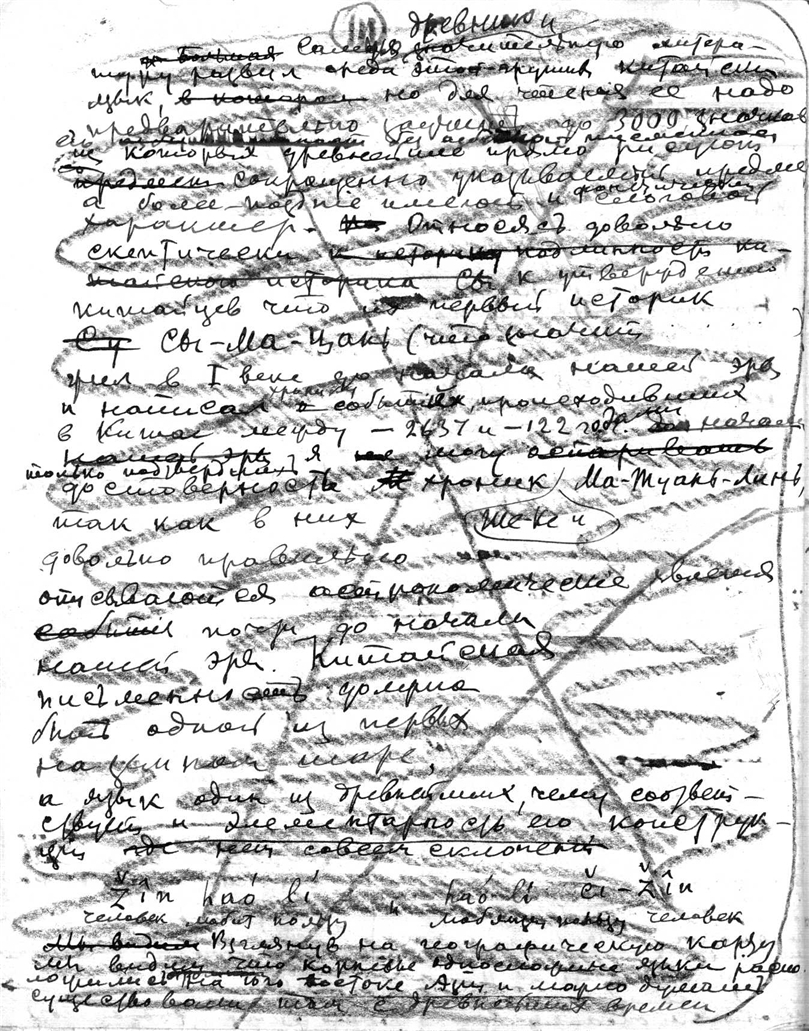 древнюю и
Самую значительную литера-
туру развил среди этой группы китайский
язык, в котором но для чтения ее надо
предварительно изучить до 3000 значков
из которых древнейшие прямо рисуют
предмет сокращенно указываемый
а более поздние имеют и фонетический слоговой
характер. Относясь довольно
скептически к подлинность ки-
тайского историка к утверждению
китайцев что их первый историк
Сы-Ма-Цань (что значит )
жил в I веке до начала нашей эры
и написал хронику событий, происходивших
в Китае между — 2637 и — 122 годами до начала
нашей эры я не могу оспаривать
только подтверждать
достоверность хроник Ма-Туань-Линь,
так как в них Ше-Ке и
довольно правильно
описываются астрономические явления
события почти до начала
нашей эры. Китайская
письменность должна
быть одной из первых
на земном шаре,
а язык один из древнейших, чему соответ-
ствует и элементарность его конструк-
ции где нет совсем склонений
Žîn haó lí и haó lí čı-Žîn
человек любит пользу любящий пользу человек
Мы видим Взглянув на географическую карту
мы видим что корневые односложные языки распо-
ложились на юго востоке Азии и можно думать
существовали там с древнейших времен